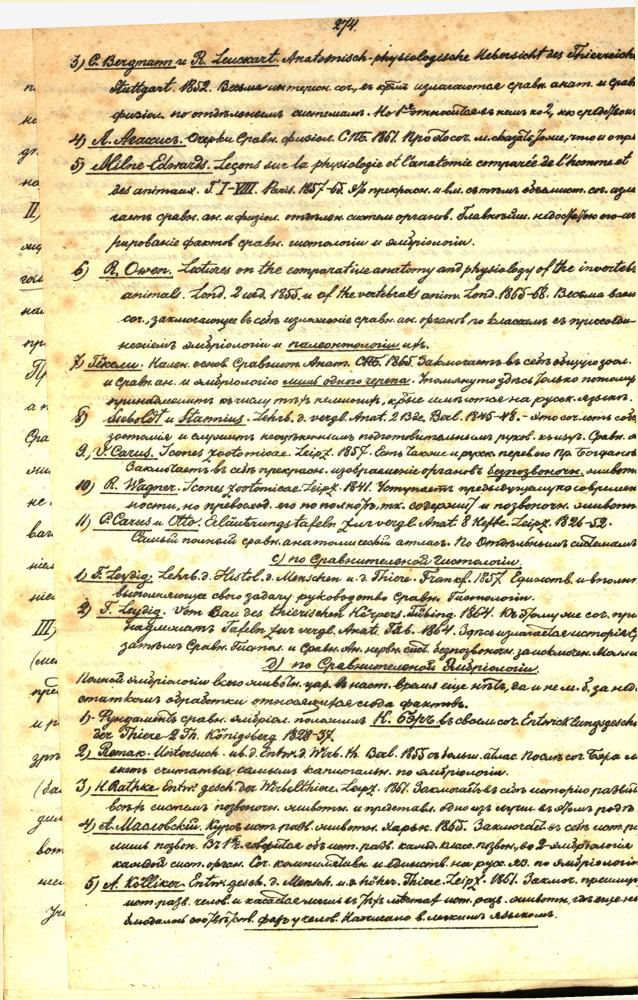 274.
3) C. Bergmann и R. Leuckart. Anatomisch-physiologische Uebersicht des Thierreichs
Stuttgart. 1852. Весьма интересн. соч., въ кот. излагаются сравн. анат. и срав
физіол. по отдѣльнымъ системамъ. Но
4) Л. Агассисъ. Очерки Сравн. физіол. СПБ. 1861. Про
5) Milne-Edwards. Leçons sur la physiologie et l'anatomie comparée de l'homme et
des animaux. T. I-VIII. Paris. 1857-65. прекрасн. и вм. съ тѣмъ объемист. соч. изла
гаетъ сравн. ан. и физіол. отдѣльн. систем органовъ. Главнѣйш. недост
рированіе фактовъ сравн. гистологіи и эмбріологіи.
6) R. Owen. Lectures on the comparative anatomy and physiology of the inverteb
animals. Lond. 2 изд. 1855. и of the vertebrats anim. Lond. 1865-68. Весьма важн
соч., заключающее въ себѣ изложеніе сравн. ан. органовъ по классамъ съ присоеди-
неніемъ эмбріологіи и палеонтологіи ихъ.
7) Гёксли. Начал. основ. Сравнит. Анат. СПБ. 1865. Заключаетъ въ себѣ общую зоол.
и Сравн. ан. и эмбріологію лишь одного черепа. Упомянуто здѣсь только потому
принадлежитъ къ числу тѣхъ немногихъ, имѣются на русск. языкѣ.
8) Siebold't и Stannius. Lehrb. d. vergl. Anat. 2 Bde. Berl. 1845-48. - это соч. есть соб
зоотомія и служитъ неоцѣненнымъ подготовительнымъ руков. къ изуч. Сравн. а
9) V. Carus. Icones zootomicae. Leipz. 1857. Есть также и русск. переводъ пр. Богданов
Заключаетъ въ себѣ прекрасн. изображеніе органовъ безпозвоночн. животн
10) R. Wagner. Icones zootomicae. Leipz. 1841. Уступаетъ предъидущему современ
ности, но превосход. его по полнотѣ, т.к. содержитъ и позвоночн. животн
11) C. Carus и Otto. Erläuterungstafeln zur vergl. Anat. 8 Hefte. Leipz. 1826-52.
Самый полный сравн. анатомическій атласъ. По отдѣльнымъ системамъ
c) по Сравнительной Гистологіи.
1) F. Leydig. Lehrb. d. Histol. d. Menschen u. d. Thiere. Frankf. 1857. Единств. и вполн
выполняющее свою задачу руководство Сравн. Гистологіи.
2) F. Leydig. Vom Bau des thierischen Körpers. Tübing. 1864. Къ этому же соч. при
надлежатъ Tafeln zur vergl. Anat. Tüb. 1864. Здѣсь излагается исторія
затѣмъ Сравн. Гистол. и Сравн. Ан. нервн. сист. безпозвоночн. за исключен. Малли
d) по Сравнительной Эмбріологіи.
Полной эмбріологіи всего животн. цар. въ наст. время еще нѣтъ, да и не м. б. за нед
статкомъ обработки относящихся сюда фактовъ.
1) Фундаментъ сравн. эмбріол. положилъ К. Бэръ въ своемъ соч. Entwicklungsgesch
der Thiere. 2 Th. Königsberg. 1828-37.
2) Remak. Untersuch. üb. d. Entw. d. Wirb. th. Berl. 1855 съ больш. атлас. Послѣ соч. Бэра м
жетъ считаться самымъ капитальн. по эмбріологіи.
3) H. Rathke. Entw. gesch. der Wirbelthiere. Leipz. 1861. Заключаетъ въ себѣ исторію развит
всѣхъ системъ позвоночн. животн. и представл. одно изъ лучш. въ этомъ родѣ
4) А. Масловскій. Курсъ ист. разв. животн. Харьк. 1865. Заключаетъ въ себѣ ист. ра
лишь позвон. Въ 1й говорится объ ист. разв. кажд. класс. позвон., во 2 эмбріологія
каждой сист. орган. Соч. компилятивн. и единств. на рус. яз. по эмбріологіи
5) A. Kölliker. Entw. gesch. d. Mensch. u. d. höher. Thiere. Leipz. 1861. Заключ. преимущ
ист. разв. челов. и касается лишь въ тѣхъ мѣстахъ ист. разв. животн., гдѣ еще не
фазъ у челов. Написано в. легкимъ языкомъ.